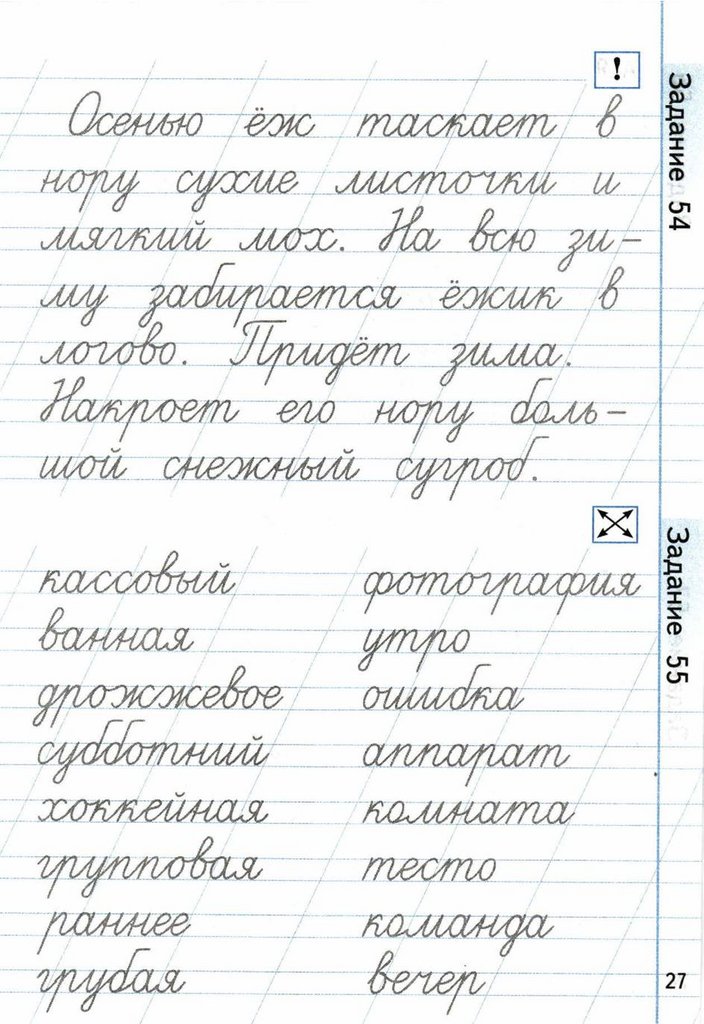 !
Осенью ёж таскает в
нору сухие листочки и
мягкий мох. На всю зи-
му забирается ёжик в
логово. Придёт зима.
Накроет его нору боль-
шой снежный сугроб.
Задание 54
кассовый фотография
ванная утро
дрожжевое ошибка
субботний аппарат
хоккейная комната
групповая тесто
раннее команда
грубая вечер
Задание 55
27